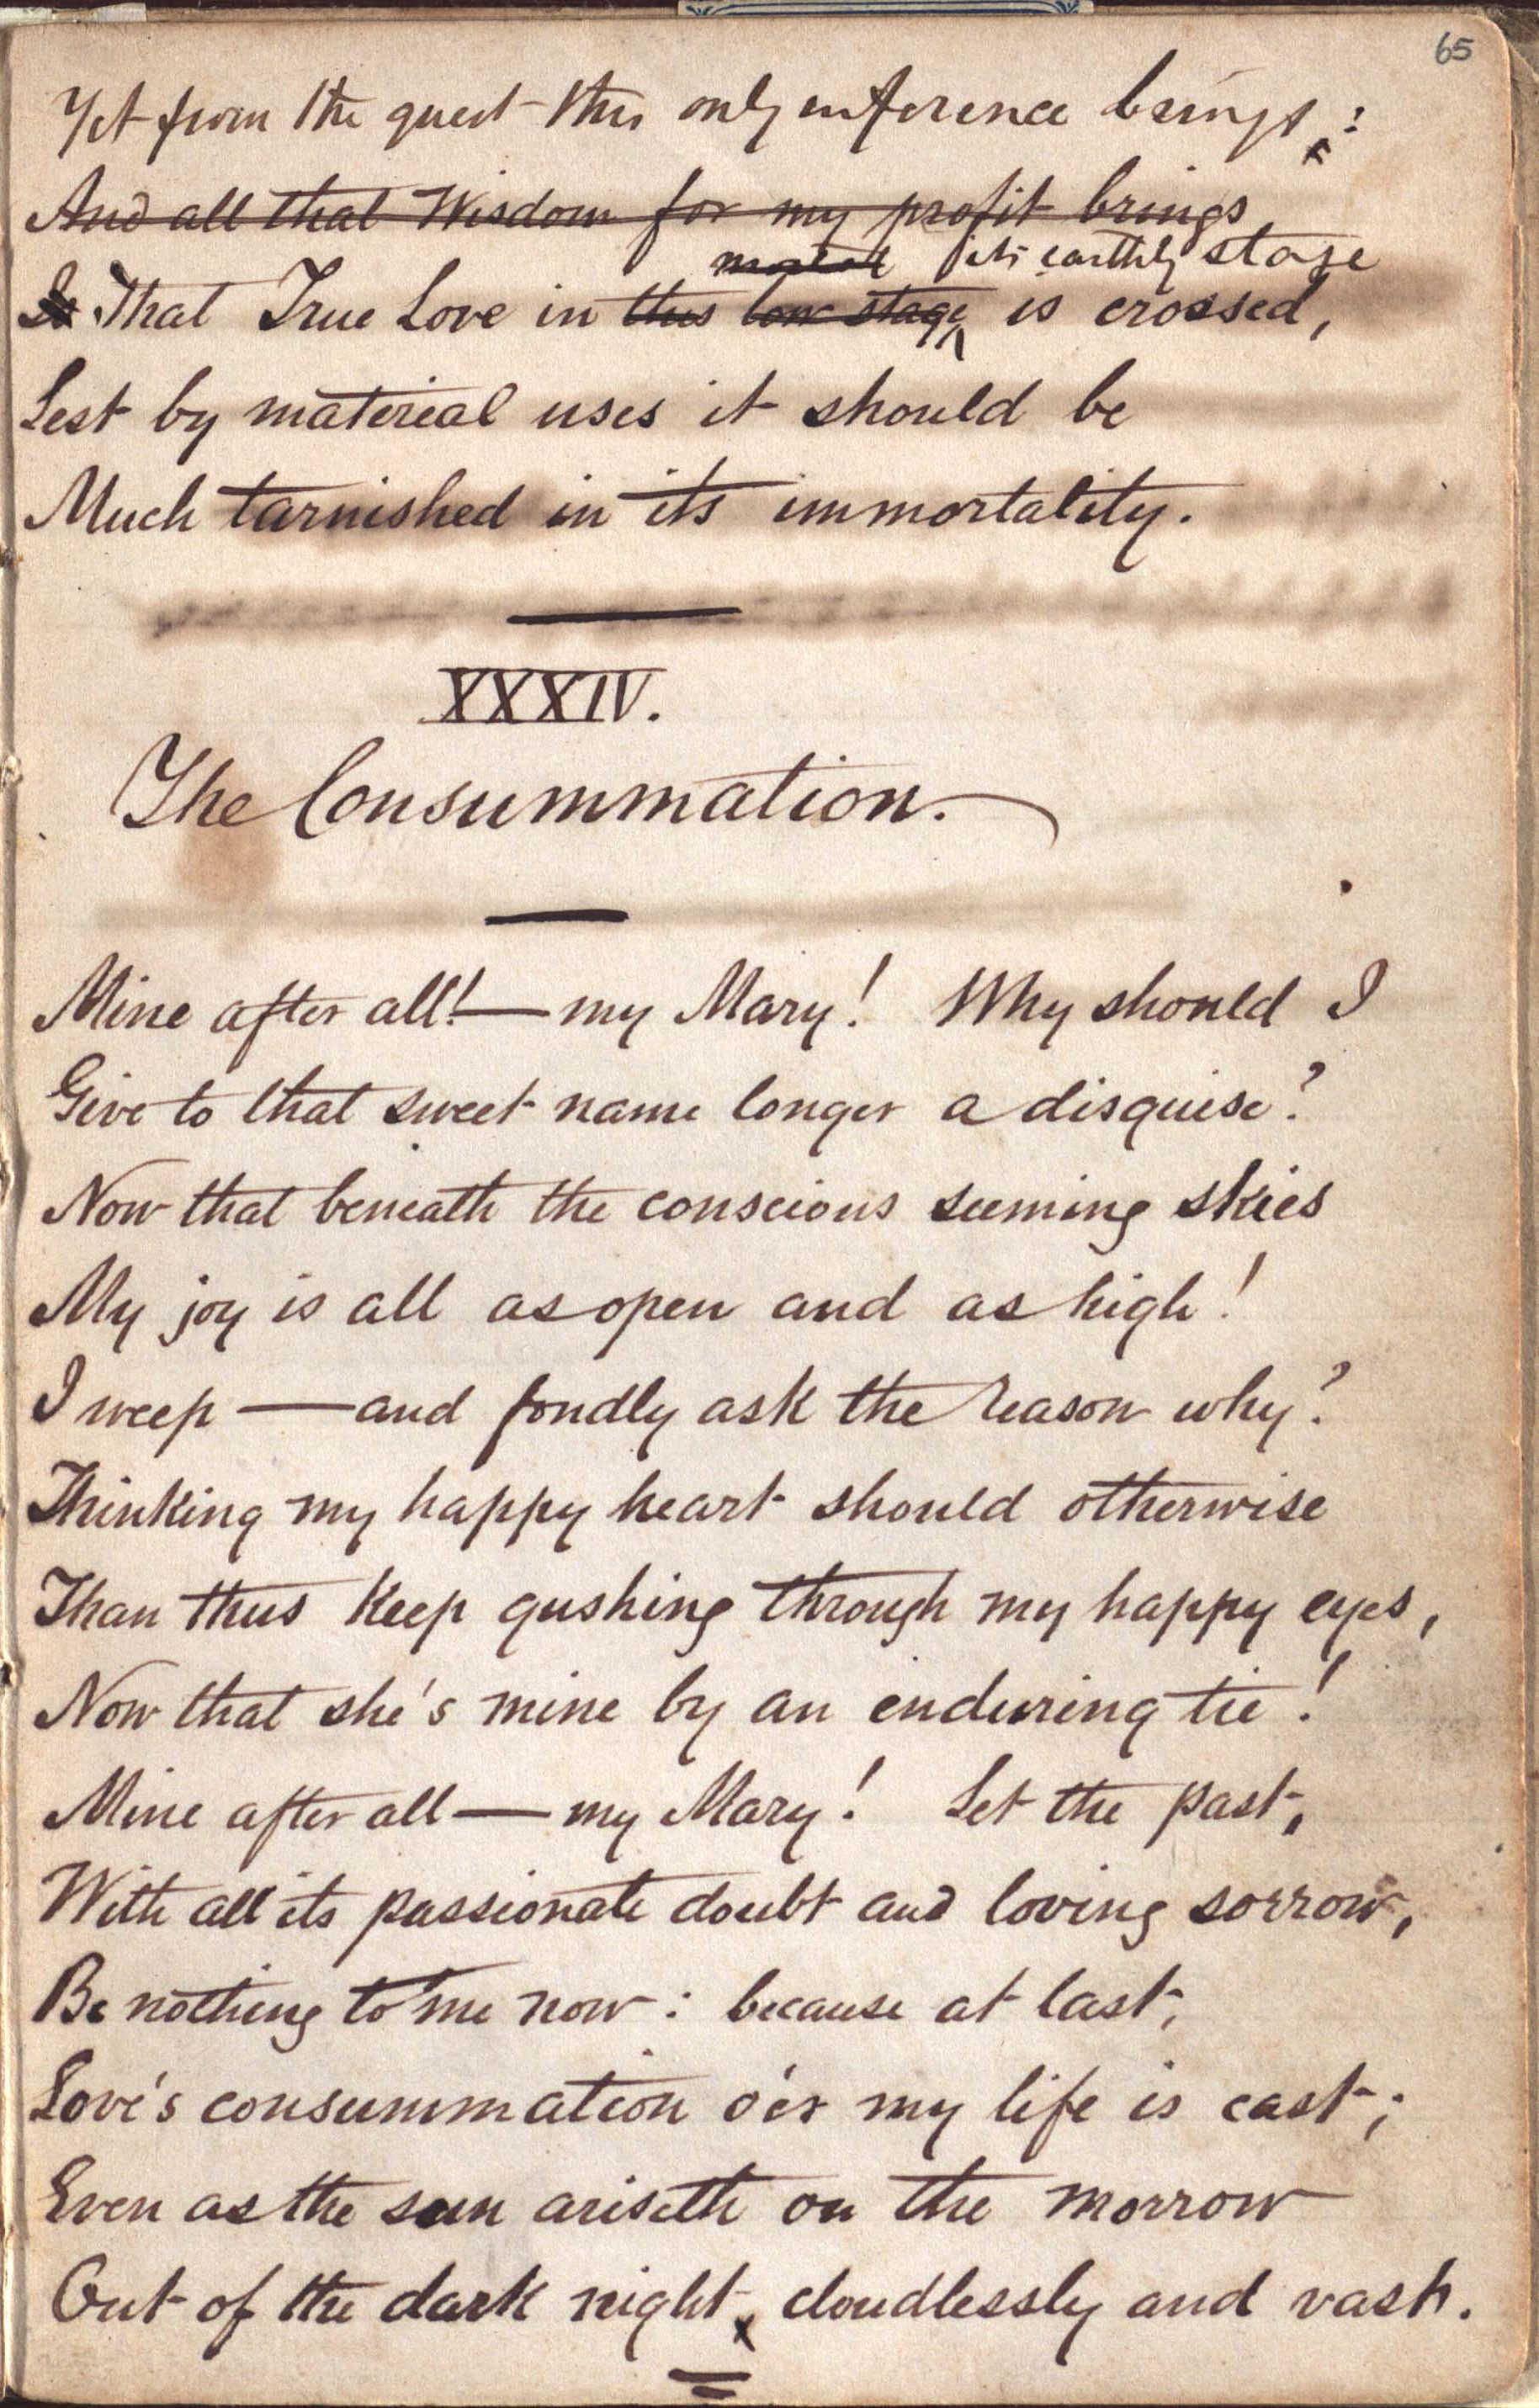 65
Yet from the quest this only inference brings:
And all that Wisdom for my profit brings
mortal its earthly stage
Is That True Love in this low stage is crossed,
Lest by material uses it should be
Much tarnished in its immortality.
XXXIV.
The Consummation.
Mine after all!—my Mary! Why should I
Give to that sweet name longer a disguise?
Now that beneath the conscious seeming skies
My joy is all as open and as high!
I weep—and fondly ask the reason why?
Thinking my happy heart should otherwise
Than thus keep gushing through my happy eyes,
Now that she's mine by an enduring tie!
Mine after all—my Mary! Let the past,
With all its passionate doubt and loving sorrow,
Be nothing to me now: because at last,
Love's consummation o'er my life is cast;
Even as the sun ariseth on the morrow
Out of the dark night, cloudlessly and vast.